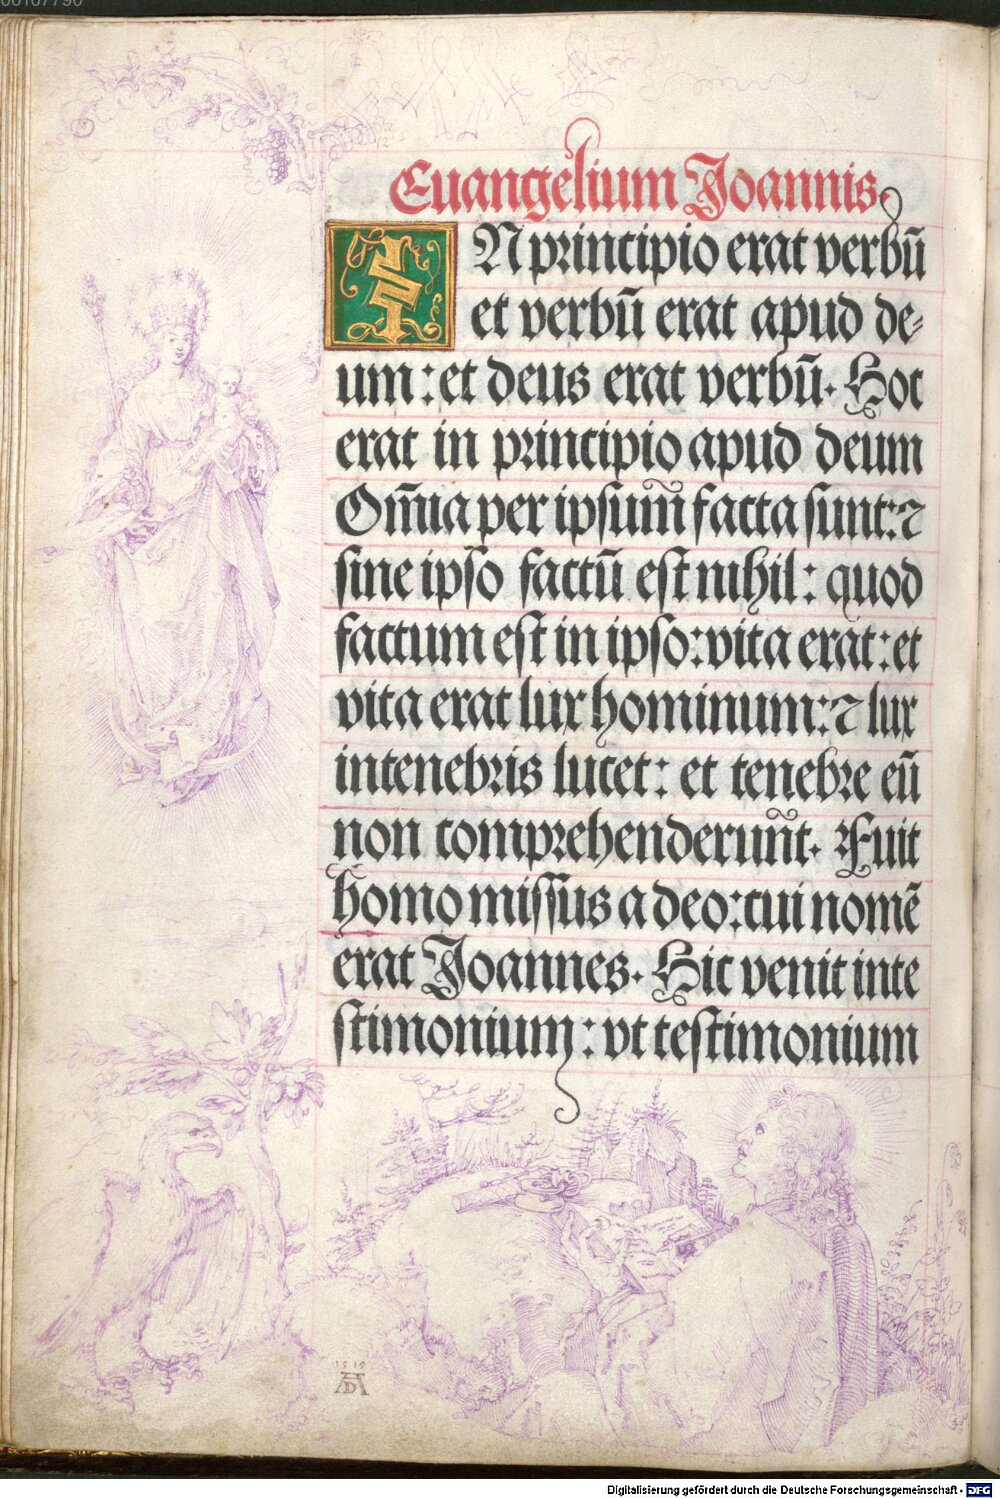 00107790
12
Euangelium Joannis.
IN principio erat verbū
et verbū erat apud de⸗
um : et deus erat verbū. Hoc
erat in principio apud deum
Om̄ia per ipsum̄ facta sunt: ⁊
sine ipso factū est nihil : quod
factum est in ipso: vita erat : et
vita erat lux hominum: ⁊ lux
intenebris lucet : et tenebre eū
non comprehenderun̄t. Fuit
homo missus a deo: cui nomē
erat Joannes. Hic venit inte
stimonium : vt testimonium
1515
AD
Digitalisierung gefördert durch die Deutsche Forschungsgemeinschaft - DFG